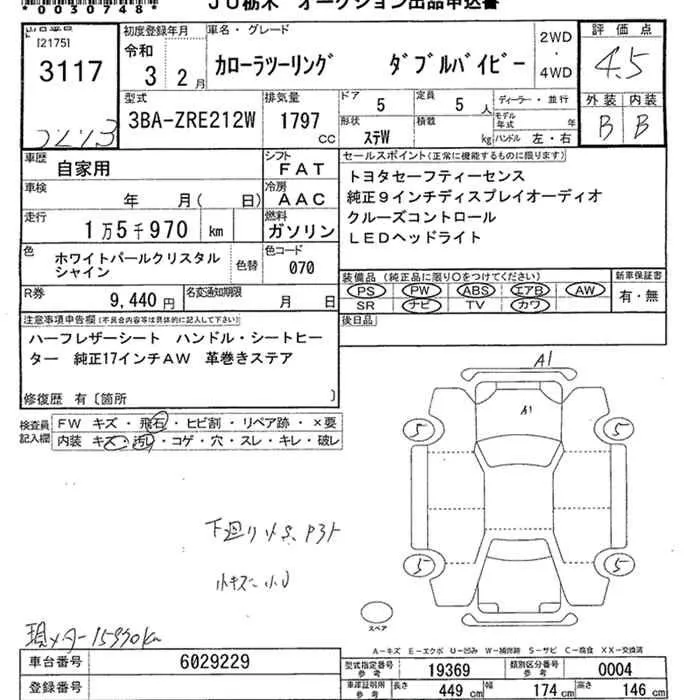 *00307481*
JU栃木 オークション出品申込書
出品番号
[2175]
3117
初度登録年月
令和
3 2月
車名・グレード
カローラツーリング ダブルバイビー
2WD
・
4WD
評価点
4.5
外装 内装
B B
型式
3BA-ZRE212W
排気量
1797
CC
ドア
5
定員
5 人
形状
ステW
積載
kg
ディーラー・並行
モデル年式 年
ハンドル 左・右
車歴
自家用
シフト
FAT
車検
年 月( 日)
冷房
AAC
走行
1万5千970 km
燃料
ガソリン
色
ホワイトパールクリスタル
シャイン
色替
色コード
070
R券
9,440円
名変通知期限
月 日
セールスポイント(正常に機能するものに限ります)
トヨタセーフティーセンス
純正9インチディスプレイオーディオ
クルーズコントロール
LEDヘッドライト
装備品(純正品に限り○をつけてください)
PS PW ABS エアB AW
SR ナビ TV カワ
新車保証書
有・無
後日品
注意事項申告欄(不具合内容等は具体的に記入して下さい)
ハーフレザーシート ハンドル・シートヒー
ター 純正17インチAW 革巻きステア
修復歴 有〔箇所 〕
検査員
記入欄
FW キズ・飛石・ヒビ割・リペア跡・×要
内装 キズ・汚レ・コゲ・穴・スレ・キレ・破レ
A1
A1
5
5
5
5
スペア
下廻り小S、P3ト
小キズ 小U
現メーター15990km
A-キズ E-エクボ U-凹み W-補修跡 S-サビ C-腐食 XX-交換済
車台番号
6029229
登録番号
型式指定番号
参考
19369
類別区分番号
参考
0004
車庫証明用
参考
長さ
449 cm
幅
174 cm
高さ
146 cm